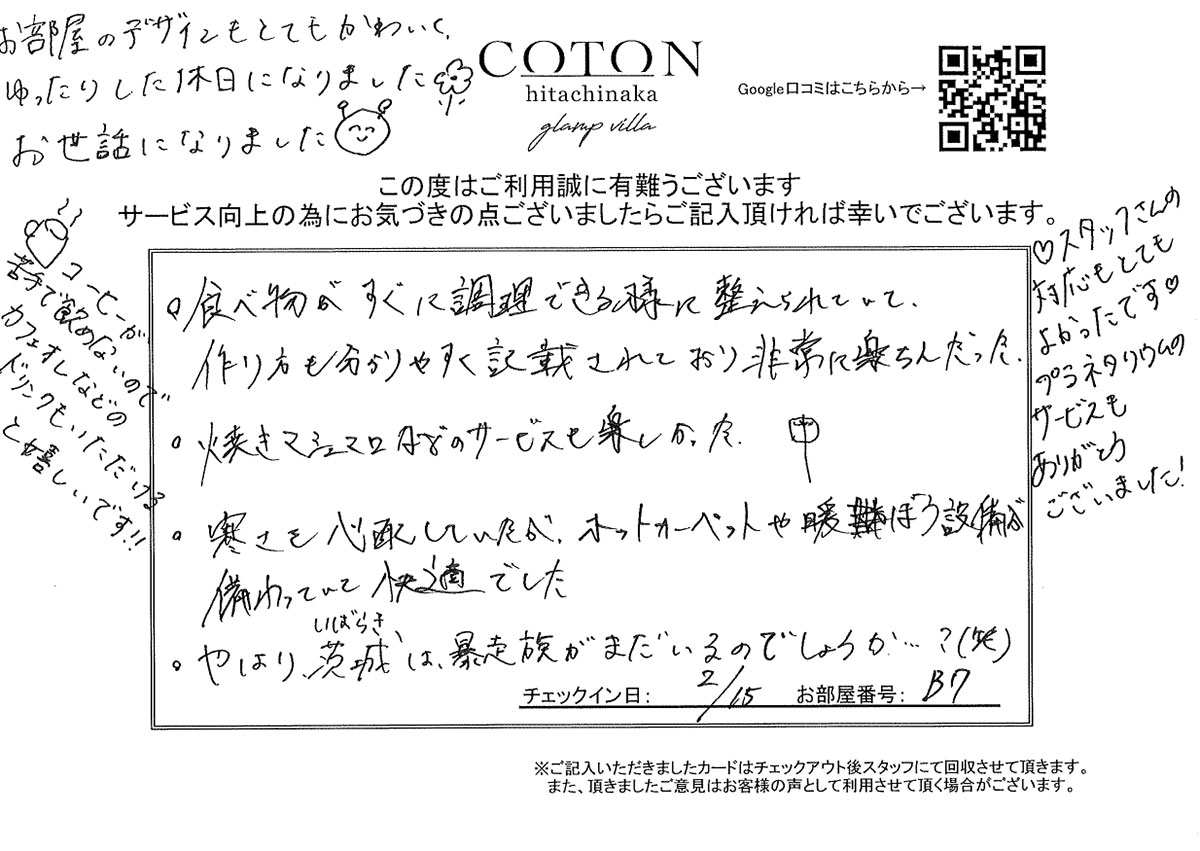 お部屋のデザインもとてもかわいく、
ゆったりした休日になりました
お世話になりました
COTON
hitachinaka
glamp villa
Google口コミはこちらから→
この度はご利用誠に有難うございます
サービス向上の為にお気づきの点ございましたらご記入頂ければ幸いでございます。
コーヒーが、
苦手で飲めないので
カフェオレなどの
ドリンクもいただける
と嬉しいです!!
。食べ物がすぐに調理できる様に整えられていて、
作り方も分かりやすく記載されており非常に楽ちんだった。
。焼きマシュマロなどのサービスも楽しかった。
。寒さを心配していたが、ホットカーペットや暖ぼう設備が
備わっていて快適でした
。やはり、茨城は、暴走族がまだいるのでしょうか…?(笑)
いばらき
チェックイン日: 2/15 お部屋番号: B7
♡スタッフさんの
対応もとても
よかったです♡
プラネタリウムの
サービスも
ありがとう
ございました!
※ご記入いただきましたカードはチェックアウト後スタッフにて回収させて頂きます。
また、頂きましたご意見はお客様の声として利用させて頂く場合がございます。